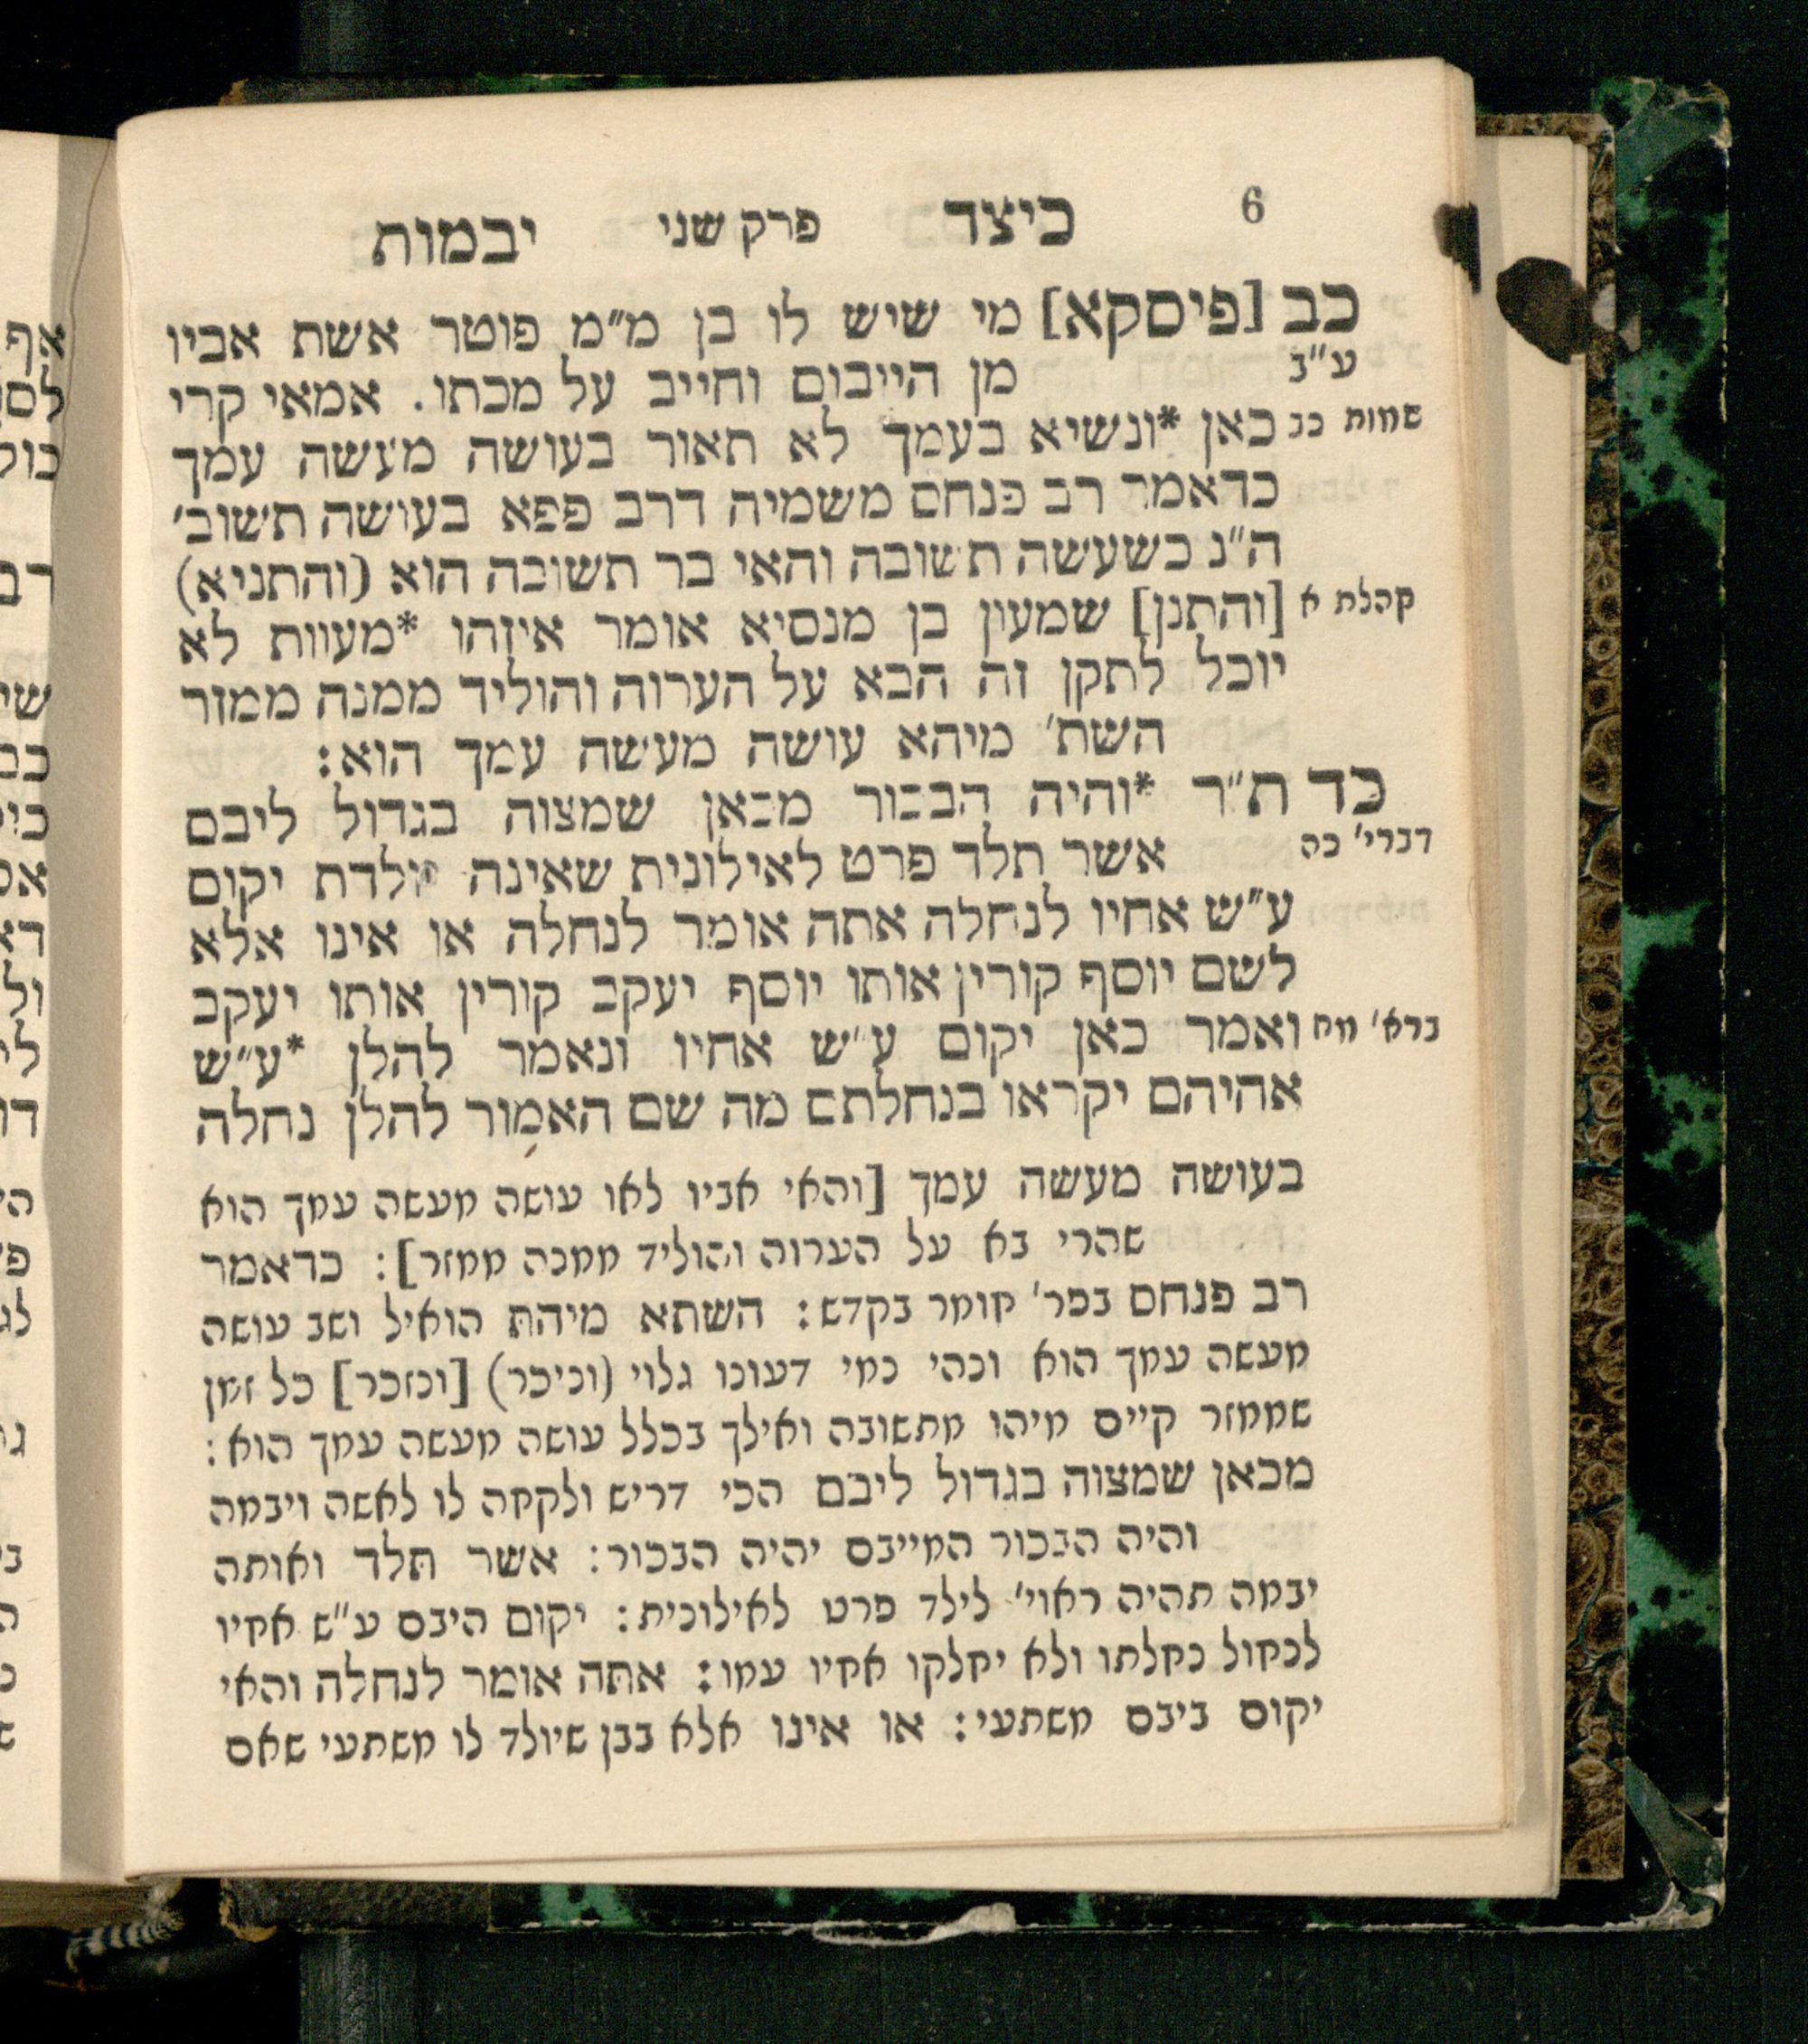 6 כיצד פרק שני יבמות
כב [פיסקא] מי שיש לו בן מ"מ פוטר אשת אביו
ע"ב
מן הייבום וחייב על מכתו. אמאי קרי
שמות כב
כאן *ונשיא בעמך לא תאור בעושה מעשה עמך
כדאמר רב פנחס משמיה דרב פפא בעושה תשוב'
ה"נ כשעשה תשובה והאי בר תשובה הוא (והתניא)
קהלת א
[והתנן] שמעון בן מנסיא אומר איזהו *מעוות לא
יוכל לתקן זה הבא על הערוה והוליד ממנה ממזר
השת' מיהא עושה מעשה עמך הוא:
כד ת"ר *והיה הבכור מכאן שמצוה בגדול ליבם
דברי' כה
אשר תלד פרט לאילונית שאינה יולדת יקום
ע"ש אחיו לנחלה אתה אומר לנחלה או אינו אלא
לשם יוסף קורין אותו יוסף יעקב קורין אותו יעקב
ברא' מח
ואמר כאן יקום ע"ש אחיו ונאמר להלן *ע"ש
אהיהם יקראו בנחלתם מה שם האמור להלן נחלה
בעושה מעשה עמך [והאי אביו לאו עושה מעשה עמך הוא
שהרי בא על הערוה והוליד ממנה ממזר]: כדאמר
רב פנחס בפר' חומר בקדש: השתא מיהת הואיל ושב עושה
מעשה עמך הוא ונהי נמי דעונו גלוי (וניכר) [ונזכר] כל זמן
שממזר קיים מיהו מתשובה ואילך בכלל עושה מעשה עמך הוא:
מכאן שמצוה בגדול ליבם הכי דריש ולקחה לו לאשה ויבמה
והיה הבכור המייבם יהיה הבכור: אשר תלד ואותה
יבמה תהיה ראוי' לילד פרט לאילונית: יקום היבם ע"ש אחיו
לנחול נחלתו ולא יחלקו אחיו עמו: אתה אומר לנחלה והאי
יקום ביבם משתעי: או אינו אלא בבן שיולד לו משתעי שאם